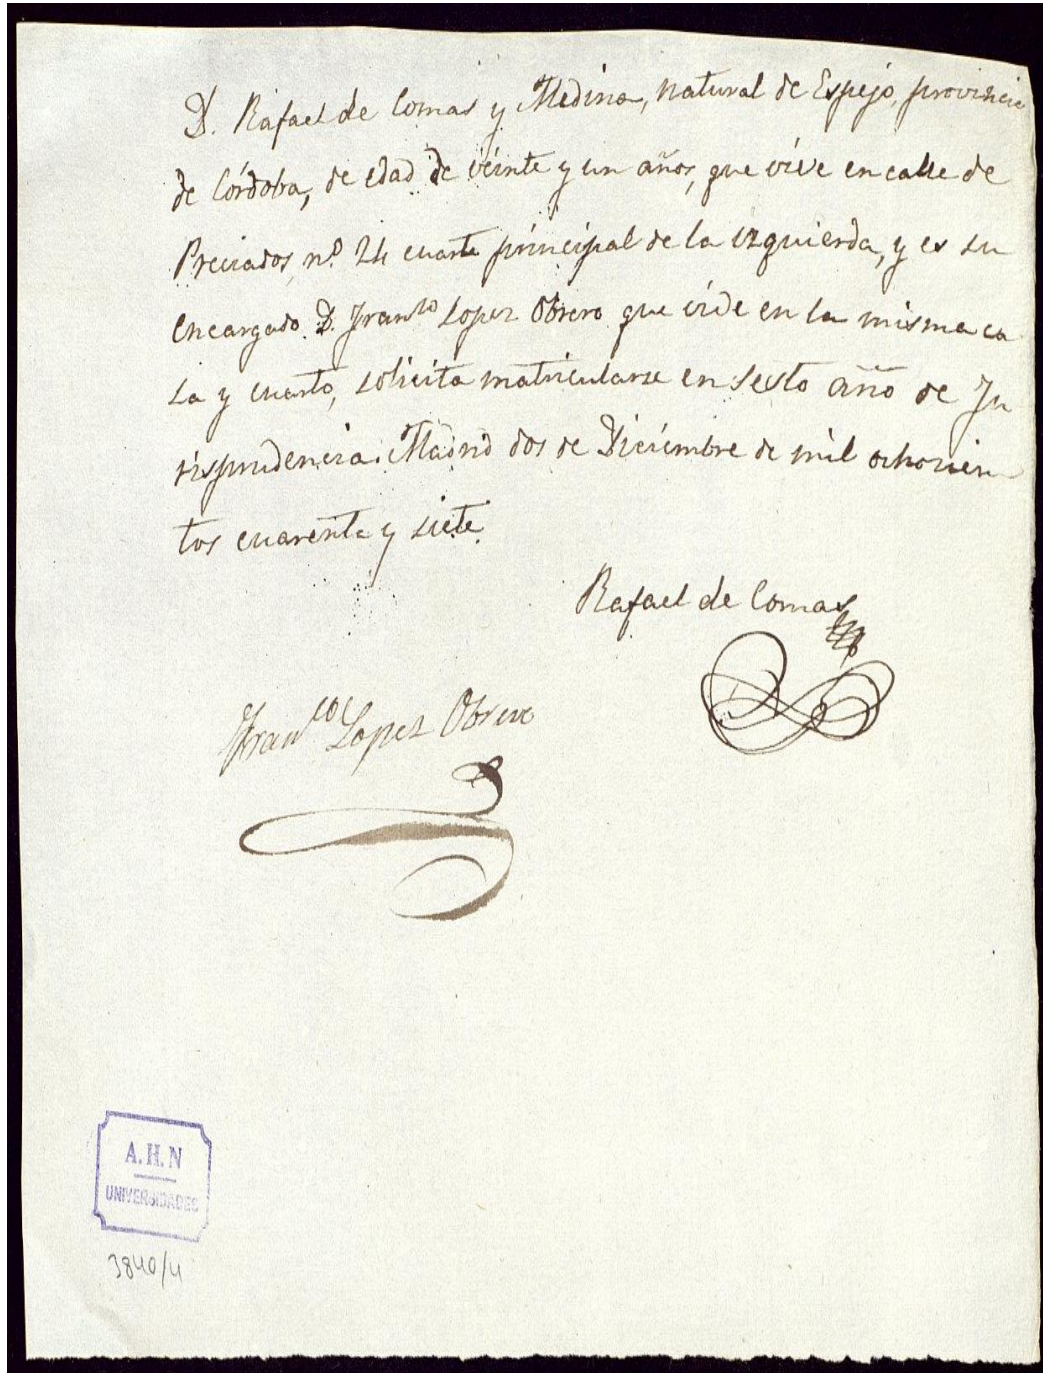 D. Rafael de Comas y Medina, natural de Espejo, provincia
de Córdoba, de edad de veinte y un años, que vive en calle de
Preciados, nº 24 cuarto principal de la izquierda, y es su
encargado D. Franco Lopez Obrero que vide en la misma ca
sa y cuarto, solicita matricularse en sesto año de Ju
risprudencia. Madrid dos de Diciembre de mil ochocien
tos cuarenta y siete.
Rafael de Comas
Franco Lopez Obrero
A.H.N
UNIVERSIDADES
3840/4